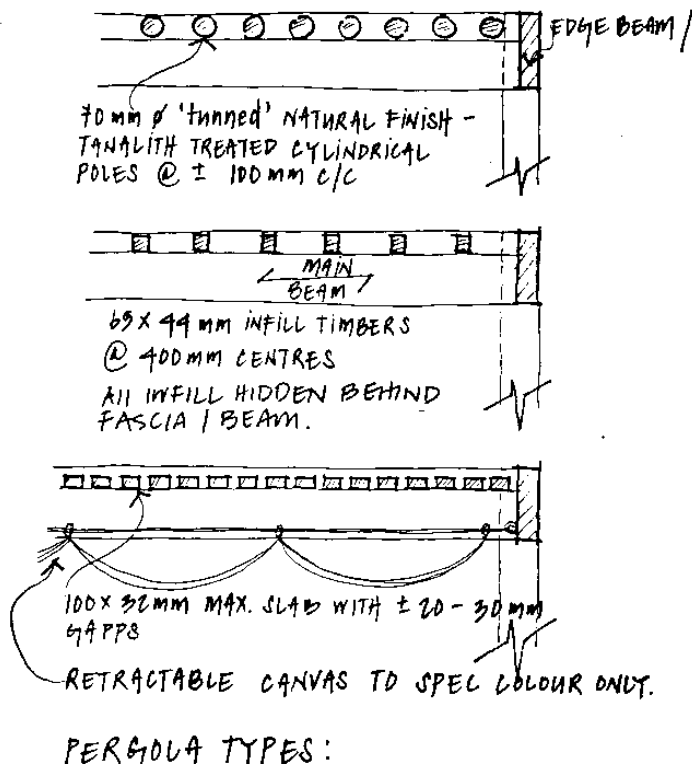 EDGE BEAM /
70mm ø 'tunned' NATURAL FINISH -
TANALITH TREATED CYLINDRICAL
POLES @ ± 100mm C/C
MAIN
BEAM
69 x 44 mm INFILL TIMBERS
@ 400mm CENTRES
All INFILL HIDDEN BEHIND
FASCIA / BEAM.
100 x 32mm MAX. SLAB WITH ± 20 - 30 mm
GAPPS
RETRACTABLE CANVAS TO SPEC COLOUR ONLY.
PERGOLA TYPES: